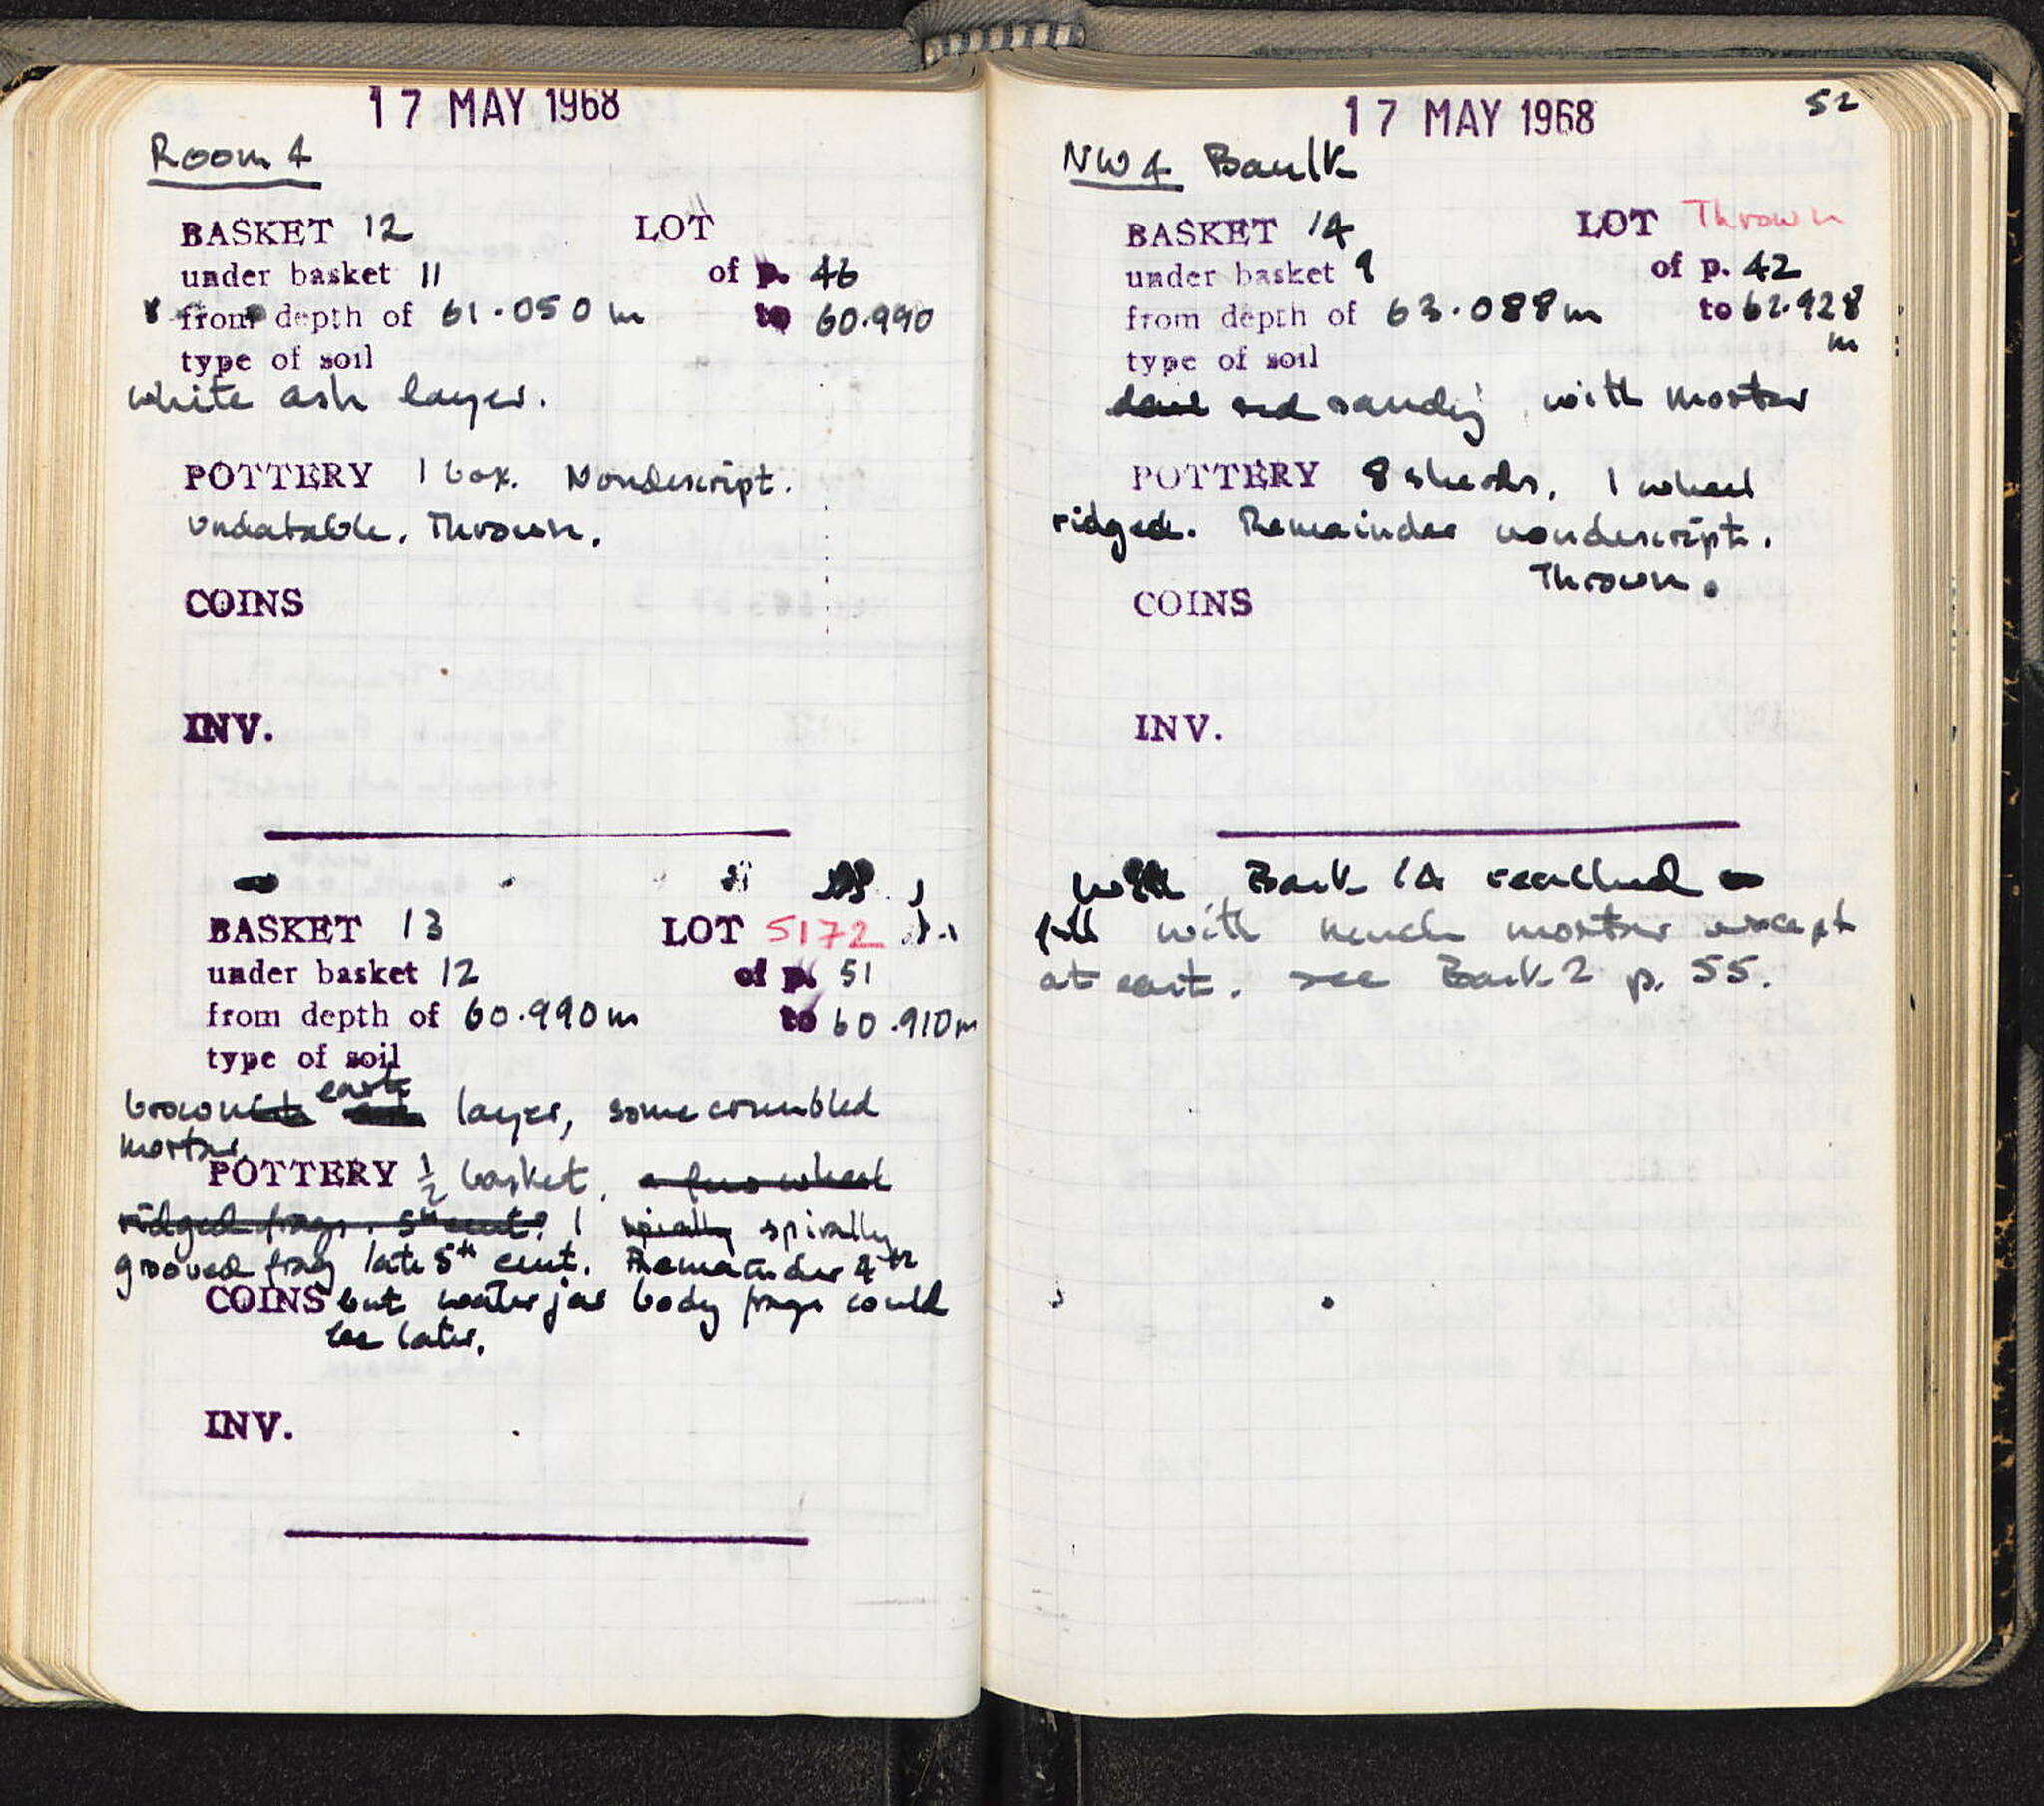 17 MAY 1968
Room 4
BASKET 12 LOT
under basket 11 of p. 46
from depth of 61.050 m to 60.990
type of soil
white ash layer.
POTTERY 1 box. Nondescript.
undatable. Thrown.
COINS
INV.
BASKET 13 LOT 5172
under basket 12 of p. 51
from depth of 60.990 m to 60.910 m
type of soil
brown earth layer, some crumbled
mortar.
POTTERY ½ basket. a few wheel
ridged frags. 5th cent? 1 spirally spirally
grooved frag late 5th cent. Remainder 4th
COINS but water jar body frags could
be later.
INV.
17 MAY 1968 52
NW 4 Baulk
BASKET 14 LOT Thrown
under basket 9 of p. 42
from depth of 63.088 m to 62.928
m
type of soil
red sandy with mortar
POTTERY 8 sherds, 1 wheel
ridged. Remainder nondescript.
Thrown.
COINS
INV.
with Bask 14 reached
fill with much mortar except
at east. see Bask 2 p. 55.